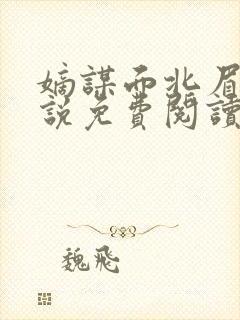 嫡謀而北眉
說免費閱讀
魏飛